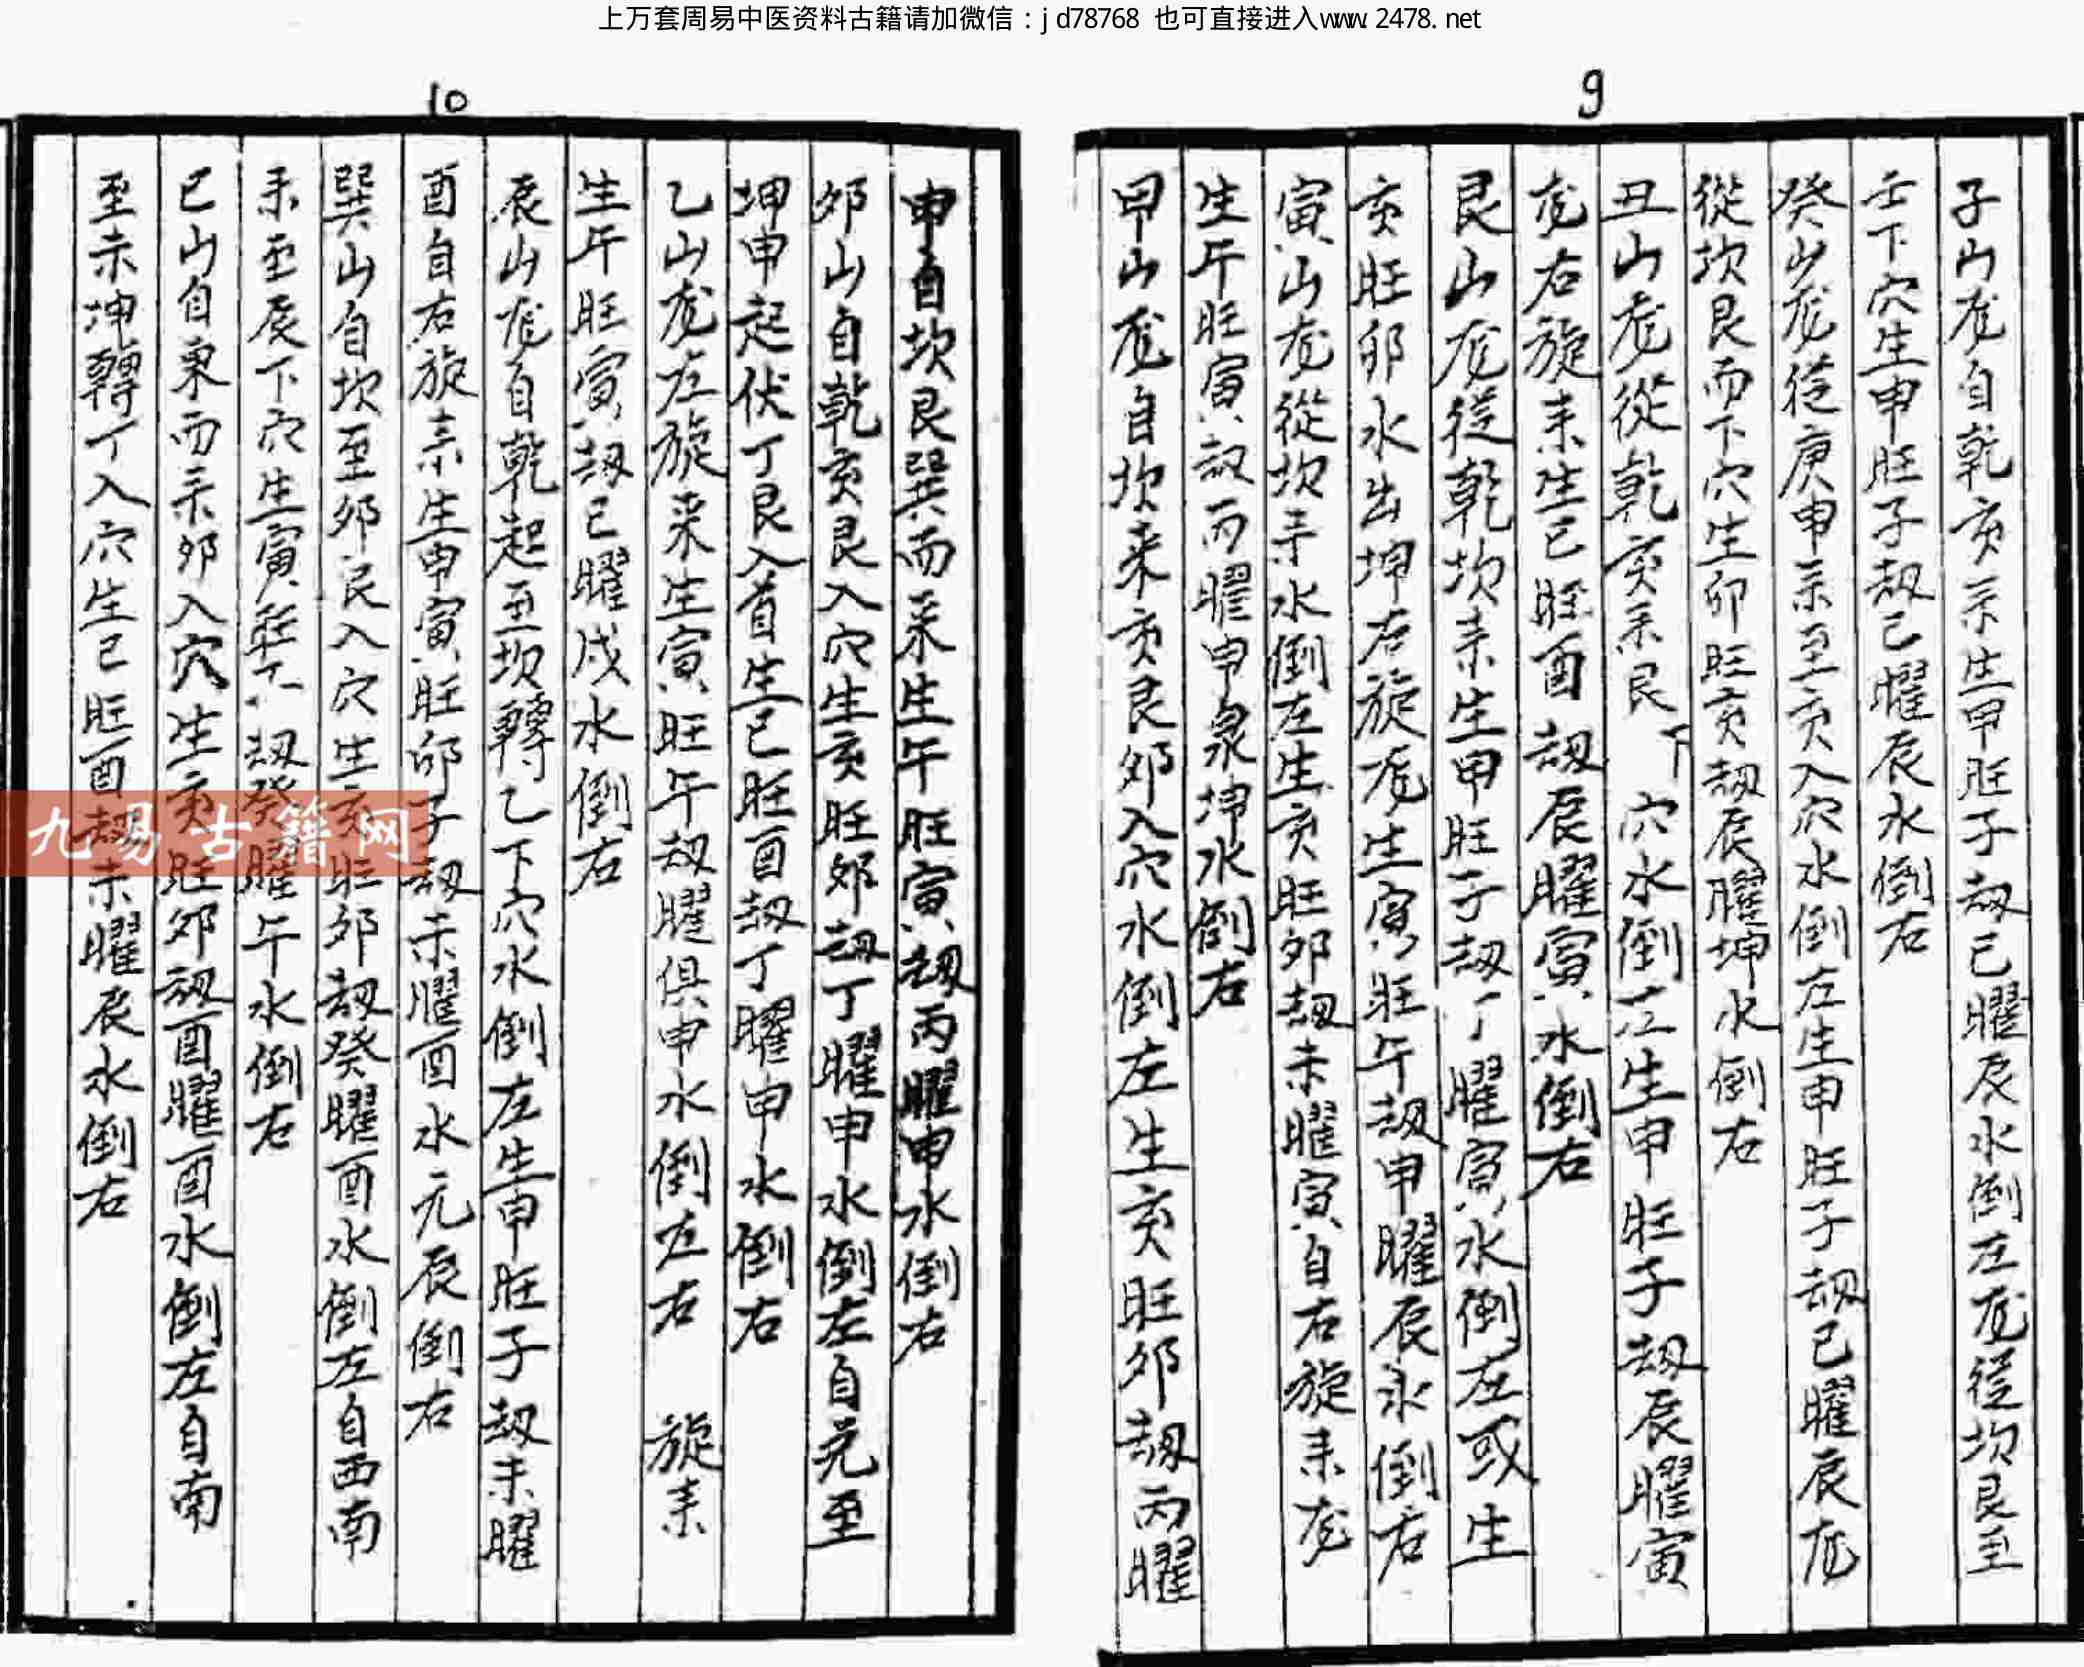 上万套周易中医资料古籍请加微信：jd78768 也可直接进入www.2478.net
9
子山龙自乾亥来生甲旺子劫巳曜辰水倒左龙從坎艮至
壬下穴生申旺子劫己曜辰水倒右
癸山龙從庚申来至亥入穴水倒左生申旺子劫己曜辰龙
從坎艮而下穴生卯旺亥劫辰曜坤水倒右
丑山龙從乾亥来艮下穴水倒左生申旺子劫辰曜寅
龙右旋来生己旺酉劫辰曜寅水倒右
艮山龙從乾坎来生甲旺子劫丁曜寅水倒左或生
亥旺卯水出坤右旋龙生寅旺午劫申曜辰水倒右
寅山龙從坎来水倒左生亥旺卯劫未曜寅自右旋来龙
生午旺寅劫丙曜申泉坤水倒右
甲山龙自坎来亥艮卯入穴水倒左生亥旺卯劫丙曜
10
申自坎艮巽而来生午旺寅劫丙曜申水倒右
卯山自乾亥艮入穴生亥旺卯劫丁曜申水倒左自兑至
坤申起伏丁艮入首生己旺酉劫丁曜申水倒右
乙山龙左旋来生寅旺午劫曜俱申水倒左右 旋来
生午旺寅劫己曜戌水倒右
辰山龙自乾起至坎轉乙下穴水倒左生申旺子劫未曜
酉自右旋来生申寅旺卯子劫未曜酉水元辰倒右
巽山自坎至卯艮入穴生亥旺卯劫癸曜酉水倒左自西南
来至辰下穴生寅旺 劫癸曜午水倒右
巳山自東而来卯入穴生亥旺卯劫酉曜酉水倒左自南
至未坤轉丁入穴生己旺酉劫未曜辰水倒右
九易古籍网